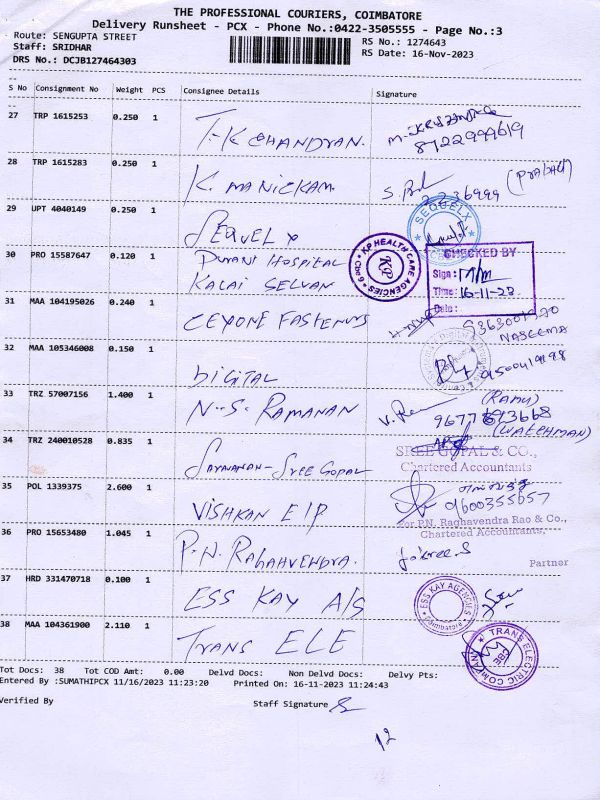 THE PROFESSIONAL COURIERS, COIMBATORE
Delivery Runsheet - PCX - Phone No.:0422-3505555 - Page No.:3
Route: SENGUPTA STREET
RS No.: 1274643
Staff: SRIDHAR
RS Date: 16-Nov-2023
DRS No.: DCJB127464303
S No Consignment No Weight PCS Consignee Details Signature
27 TRP 1615253 0.250 1 T.K CHANDRAN.
28 TRP 1615283 0.250 1 K. MANICKAM (PRABAU)
29 UPT 4040149 0.250 1 SEQUEL X
30 PRO 15587647 0.120 1 DURAI HOSPITAL
KALAI SELVAN
KP HEALTH CARE AGENCIES
KP
CHECKED BY
Sign:
Time: 16-11-23
Date:
31 MAA 104195026 0.240 1 CEYONE FASTENERS
NASEEMA
32 MAA 105346008 0.150 1 DIGITAL
33 TRZ 57007156 1.400 1 N.S. RAMANAN (RAMU)
(WATCHMAN)
34 TRZ 240010528 0.835 1 SARAVANAN - SREE GOPAL
SREE GOPAL & CO.,
Chartered Accountants
35 POL 1339375 2.600 1 VISHKAN EIP
9600355657
For P.N. Raghavendra Rao & Co.,
Chartered Accountants,
36 PRO 15653480 1.045 1 P.N. RAGHAVENDRA.
Partner
37 HRD 331470718 0.100 1 ESS KAY A/S
ESS KAY AGENCIES
Coimbatore
38 MAA 104361900 2.110 1 TRANS ELE
TRANS ELECTRIC COMPANY
CBE
Tot Docs: 38 Tot COD Amt: 0.00 Delvd Docs: Non Delvd Docs: Delvy Pts:
Entered By :SUMATHIPCX 11/16/2023 11:23:20 Printed On: 16-11-2023 11:24:43
Verified By Staff Signature
12